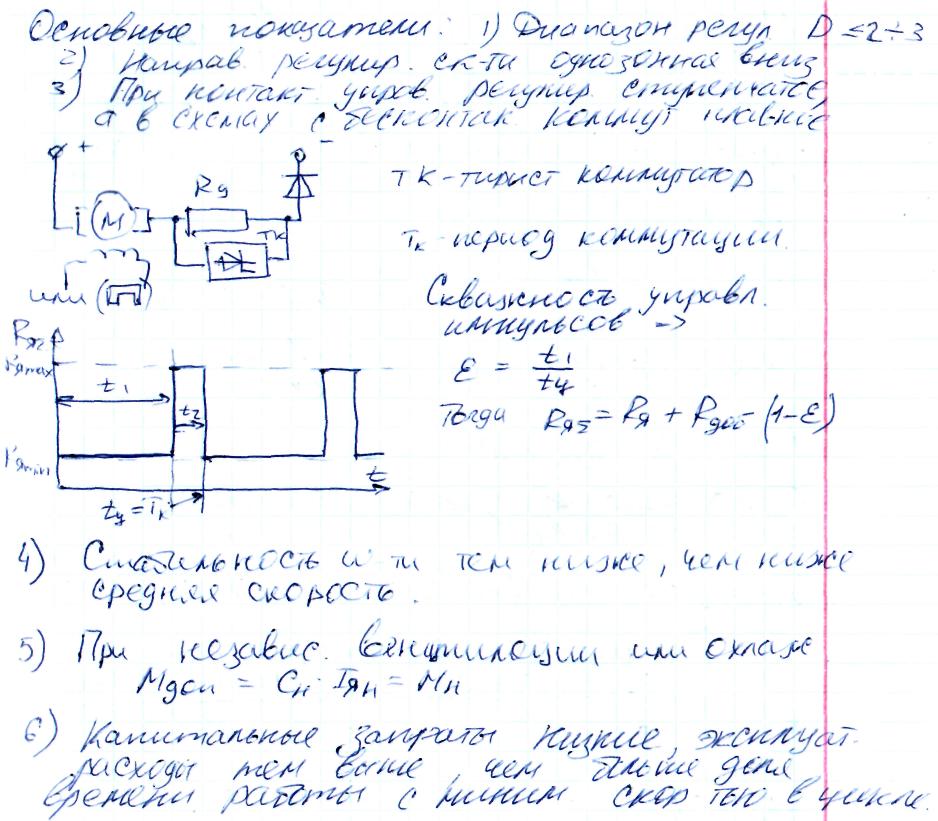 Основные показатели: 1) Диапазон регул D ≤ 2÷3
2) Направ. регулир. ск-ти однозонная вниз
3) При контакт. управ. регулир. ступенчатое,
а в схемах с бесконтак. коммут плавное
+
-
Rд
ТК - тирист коммутатор
M
ТК
Tк - период коммутации
или
Скважность управл.
импульсов =>
RяΣ
rяmax
t1
ε = t1/tц
t2
Тогда RяΣ = Rя + Rдоб (1-ε)
rяmin
t
tц = Tк
4) Стабильность ω ти тем ниже, чем ниже
средняя скорость.
5) При независ. вентиляции или охлаж
Mдоп = Cн · Iян = Mн
6) Капитальные затраты низкие, эксплуат.
расходы тем выше, чем больше доля
времени работы с миним скоростью в цикле.